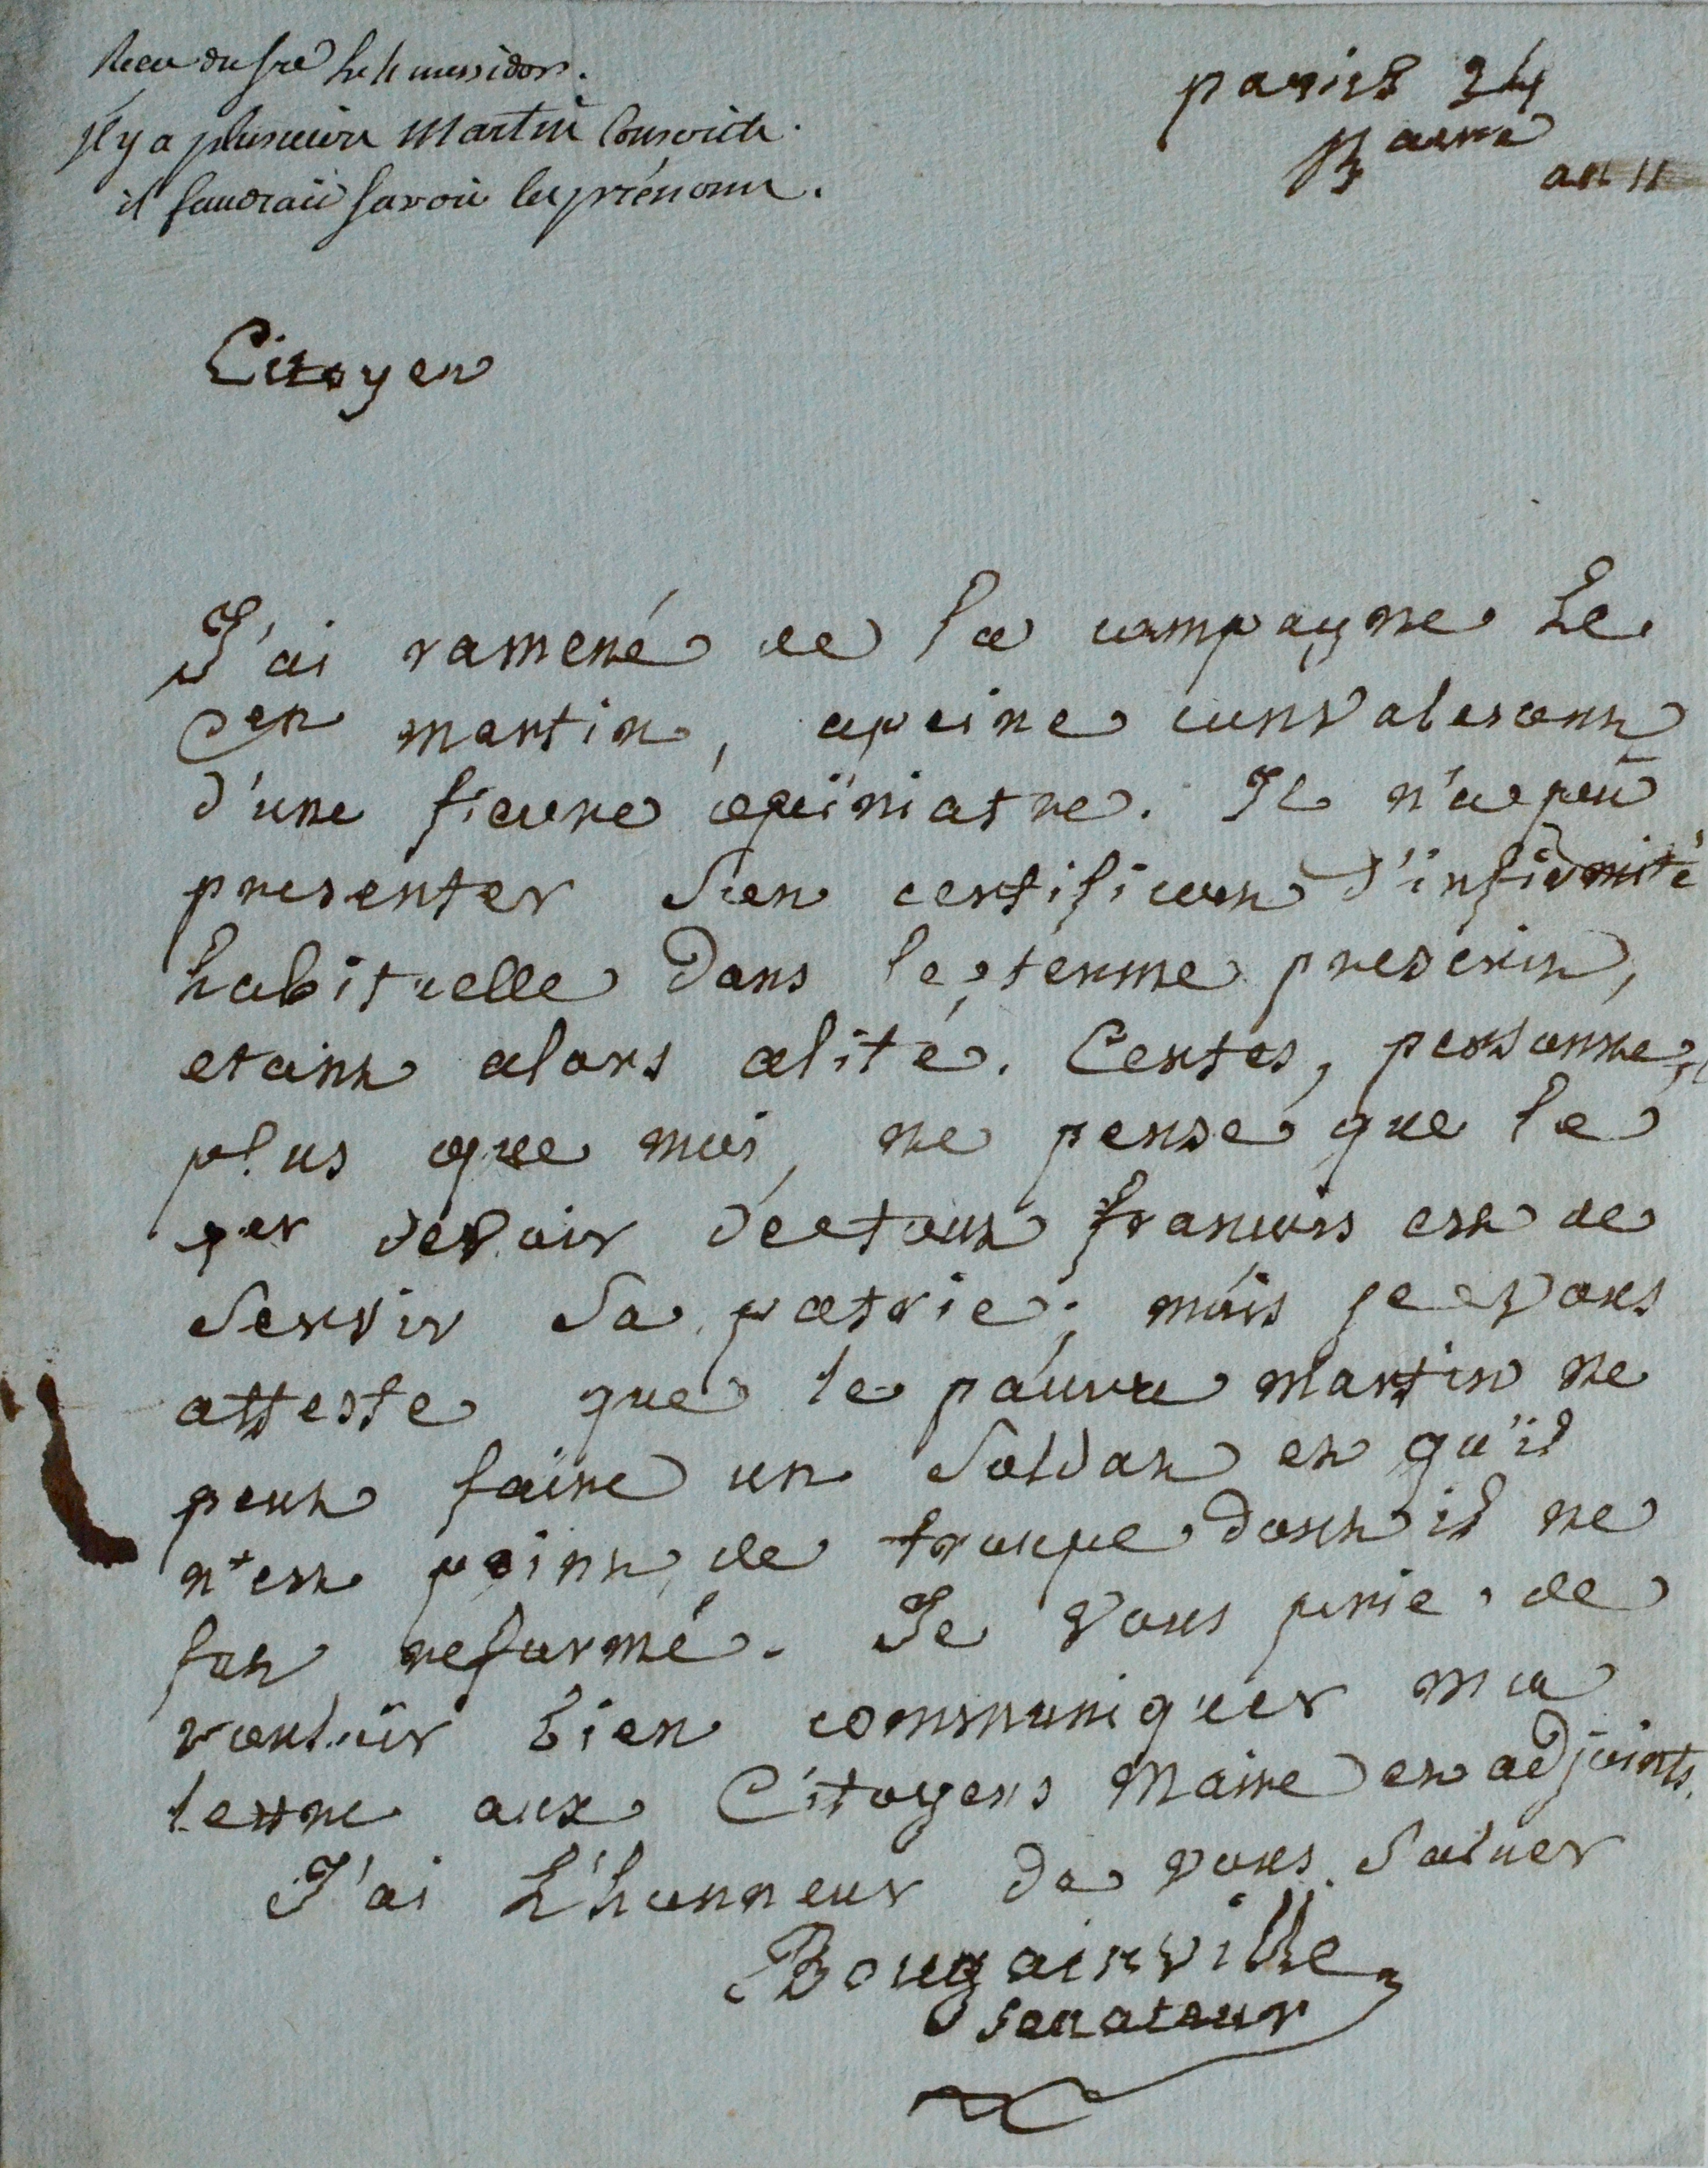 il y a plusieurs Martin Conscrits.
il faudrait savoir les prénoms.
paris 24
an 11
Citoyen
J'ai ramené de la campagne Le
cen martin, apeine convalescent
d'une fievre opiniatre. Il n'a pû
presenter son certificat d'infirmité
habituelle dans le terme prescrit,
etant alors alité. Certes, personne,
plus que moi, ne pense que le
per devoir de tout françois est de
servir sa patrie; mais je vous
atteste que le pauvre martin ne
peut faire un soldat et qu'il
n'est point de troupe dont il ne
fut reformé. Je vous prie de
vouloir bien communiquer ma
lettre aux Citoyens Maire et adjoints.
J'ai L'honneur de vous saluer
Bougainville
senateur